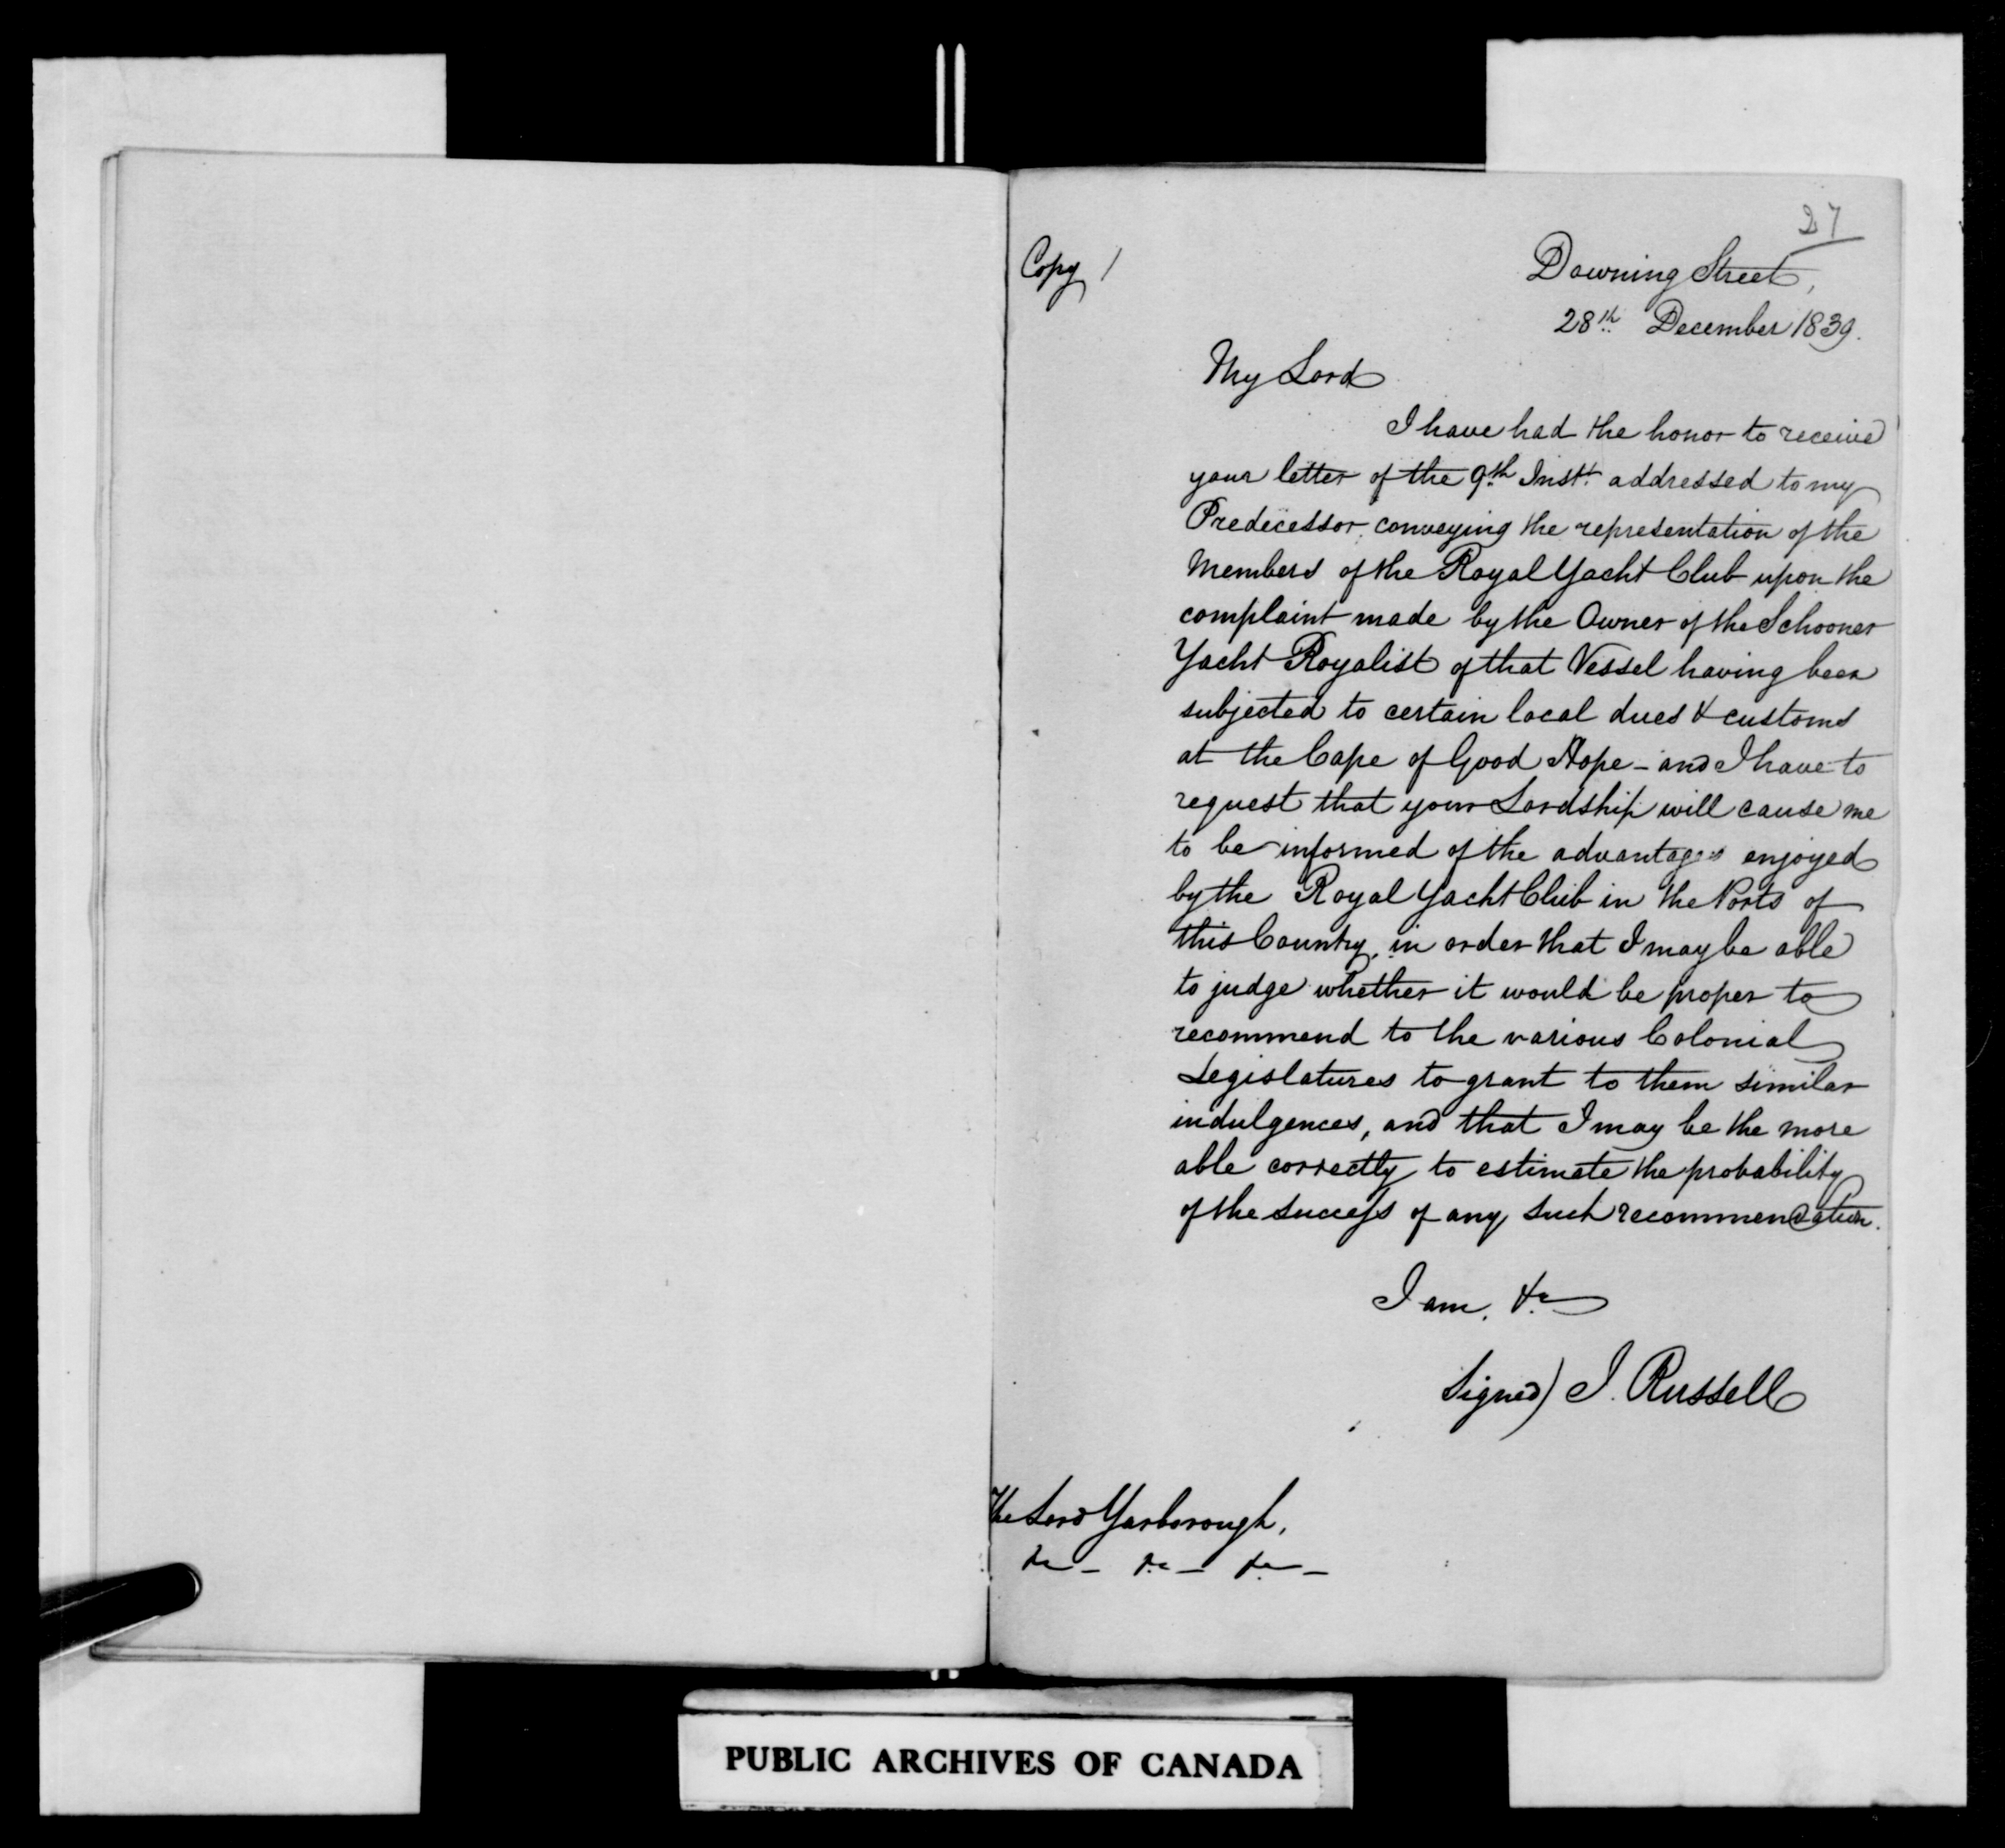 27
Copy /
Downing Street,
28th December 1839.
My Lord
I have had the honor to receive
your letter of the 9th Inst. addressed to my
Predecessor conveying the representation of the
Members of the Royal Yacht Club upon the
complaint made by the Owner of the Schooner
Yacht Royalist of that Vessel having been
subjected to certain local dues & customs
at the Cape of Good Hope - and I have to
request that your Lordship will cause me
to be informed of the advantages enjoyed
by the Royal Yacht Club in the Ports of
this Country, in order that I may be able
to judge whether it would be proper to
recommend to the various Colonial
Legislatures to grant to them similar
indulgences, and that I may be the more
able correctly to estimate the probability
of the success of any such recommendation.
I am, &c
Signed) J. Russell
The Lord Yarborough,
&c - &c - &c -
PUBLIC ARCHIVES OF CANADA